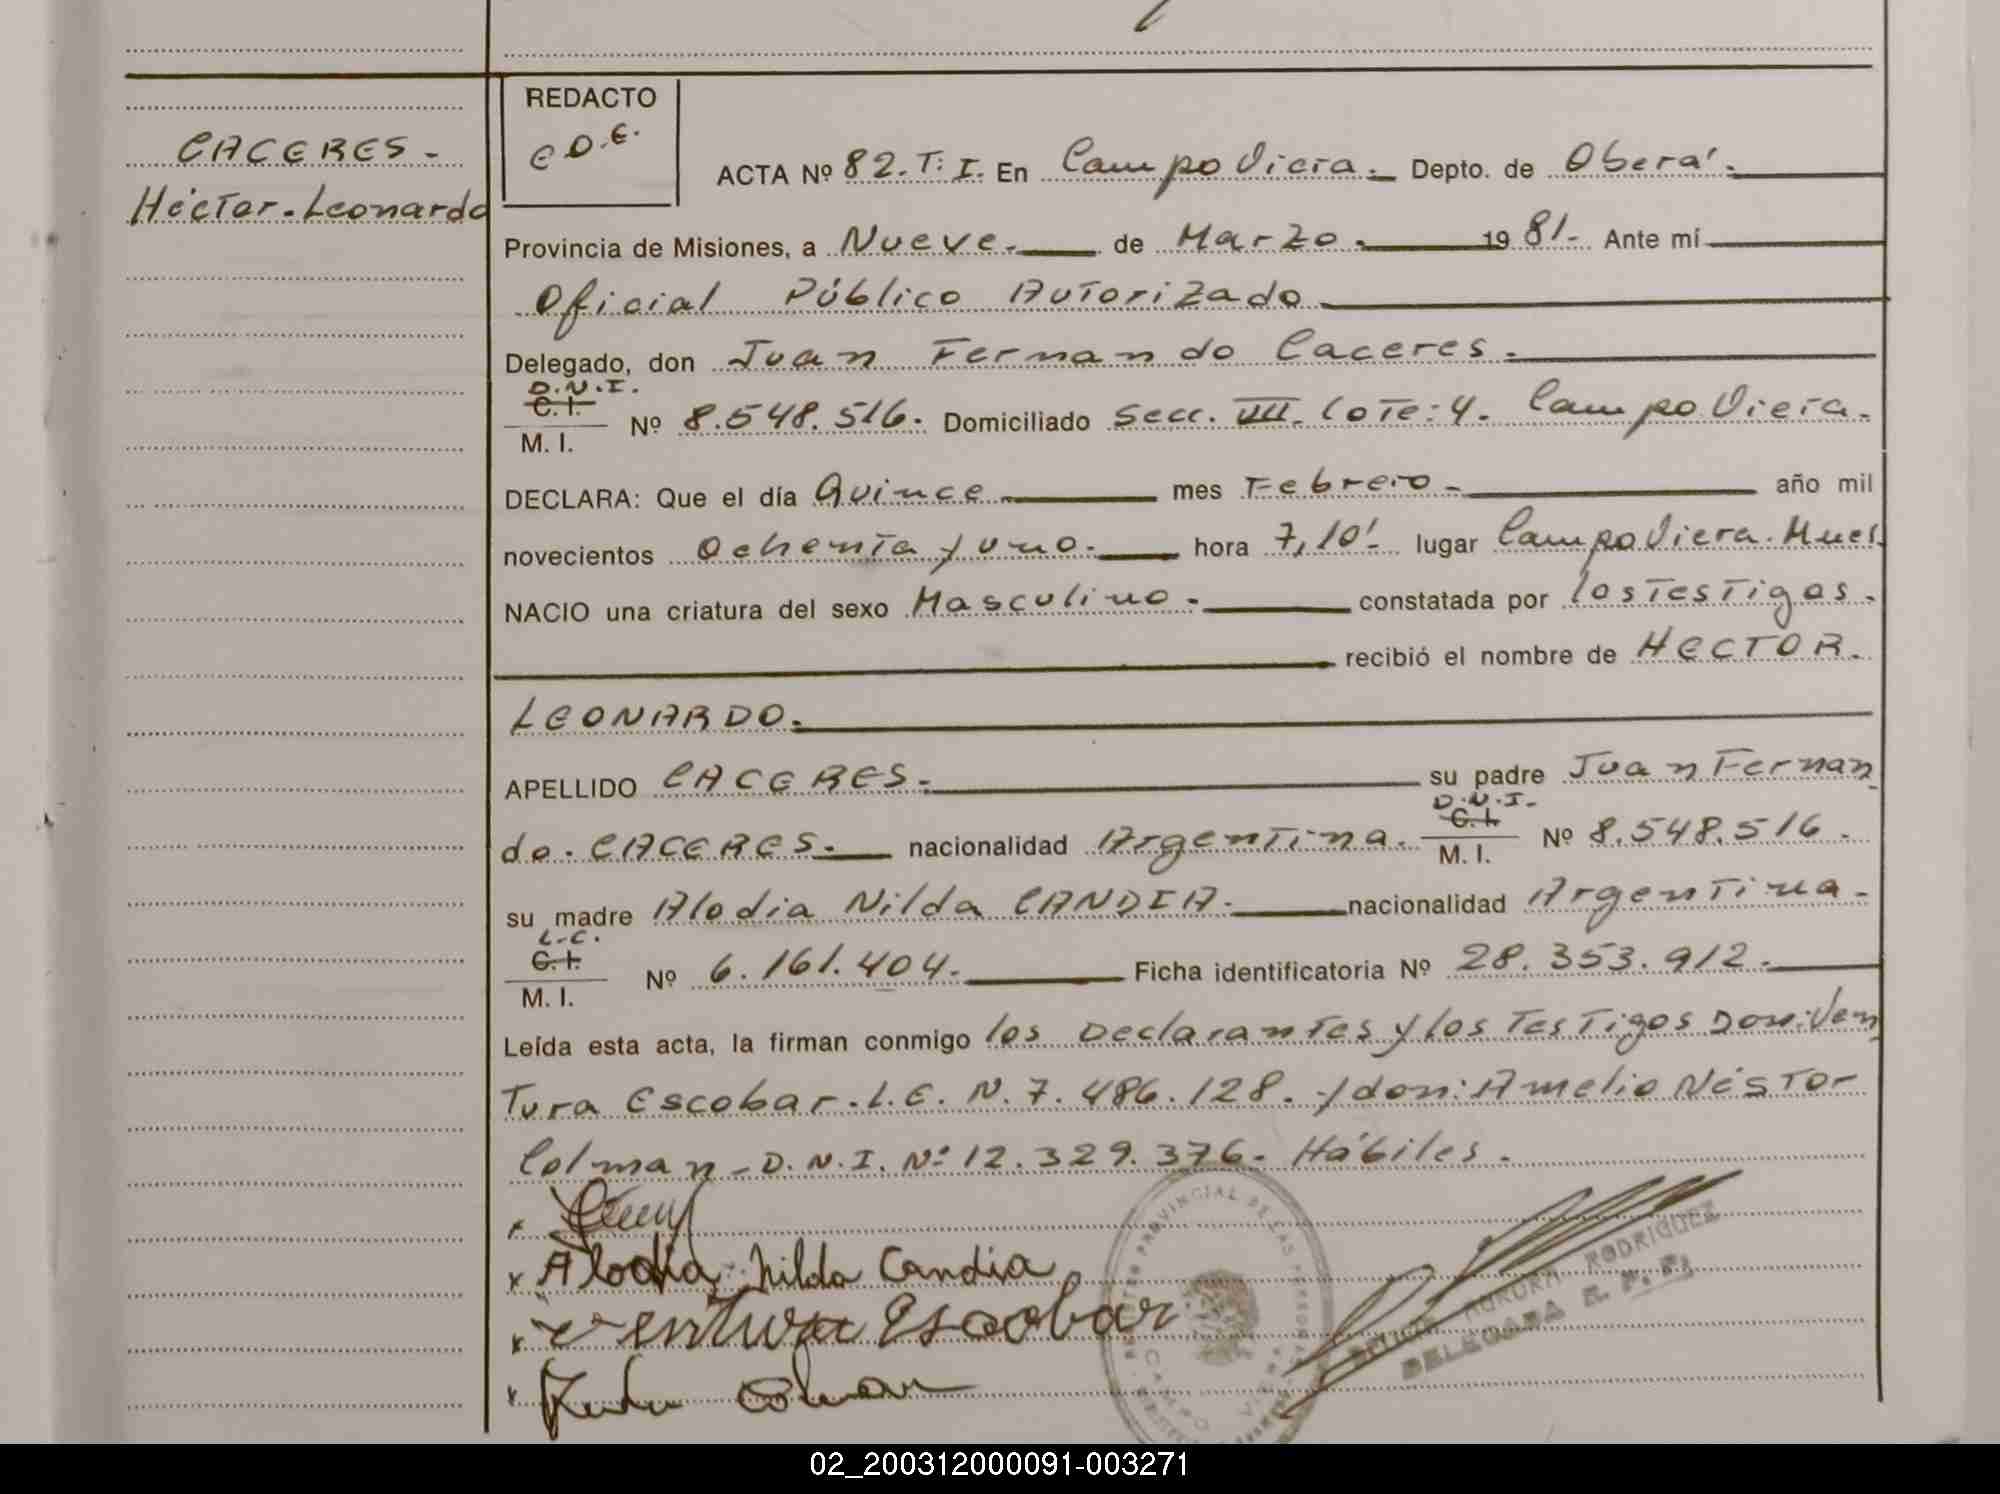 REDACTO
C.D.E.
CACERES-
Héctor-Leonardo
ACTA Nº 82.T.I. En Campo Viera.- Depto. de Oberá.-
Provincia de Misiones, a Nueve.- de Marzo.- 19 81.- Ante mí
Oficial Público Autorizado
Delegado, don Juan Fernando Caceres.-
D.N.I.
C. I.
M. I.
Nº 8.548.516. Domiciliado Secc. VIII. Lote: 4. Campo Viera.
DECLARA: Que el día Quince.- mes Febrero.- año mil
novecientos Ochenta y uno.- hora 7,10'- lugar Campo Viera.
NACIO una criatura del sexo Masculino.- constatada por los Testigos.
recibió el nombre de HECTOR.
LEONARDO.
APELLIDO CACERES.- su padre Juan Fernan
do. CACERES.- nacionalidad Argentina.
D.N.I.-
C. I.
M. I.
Nº 8.548.516.
su madre Alodia Nilda CANDIA.- nacionalidad Argentina.-
L.C.
C. I.
M. I.
Nº 6.161.404.- Ficha identificatoria Nº 28.353.912.-
Leída esta acta, la firman conmigo los Declarantes y los Testigos Don: Ven
Tura Escobar. L.E. N. 7.486.128. y don: Amelio Néstor
Colman- D.N.I. Nº 12.329.376. Hábiles.
x
x Alodia Nilda Candia
x Ventura Escobar
x Colman
REGISTRO PROVINCIAL DE LAS PERSONAS
CAMPO VIERA
AURORA RODRIGUEZ
DELEGADA R. P. P.
02_200312000091-003271